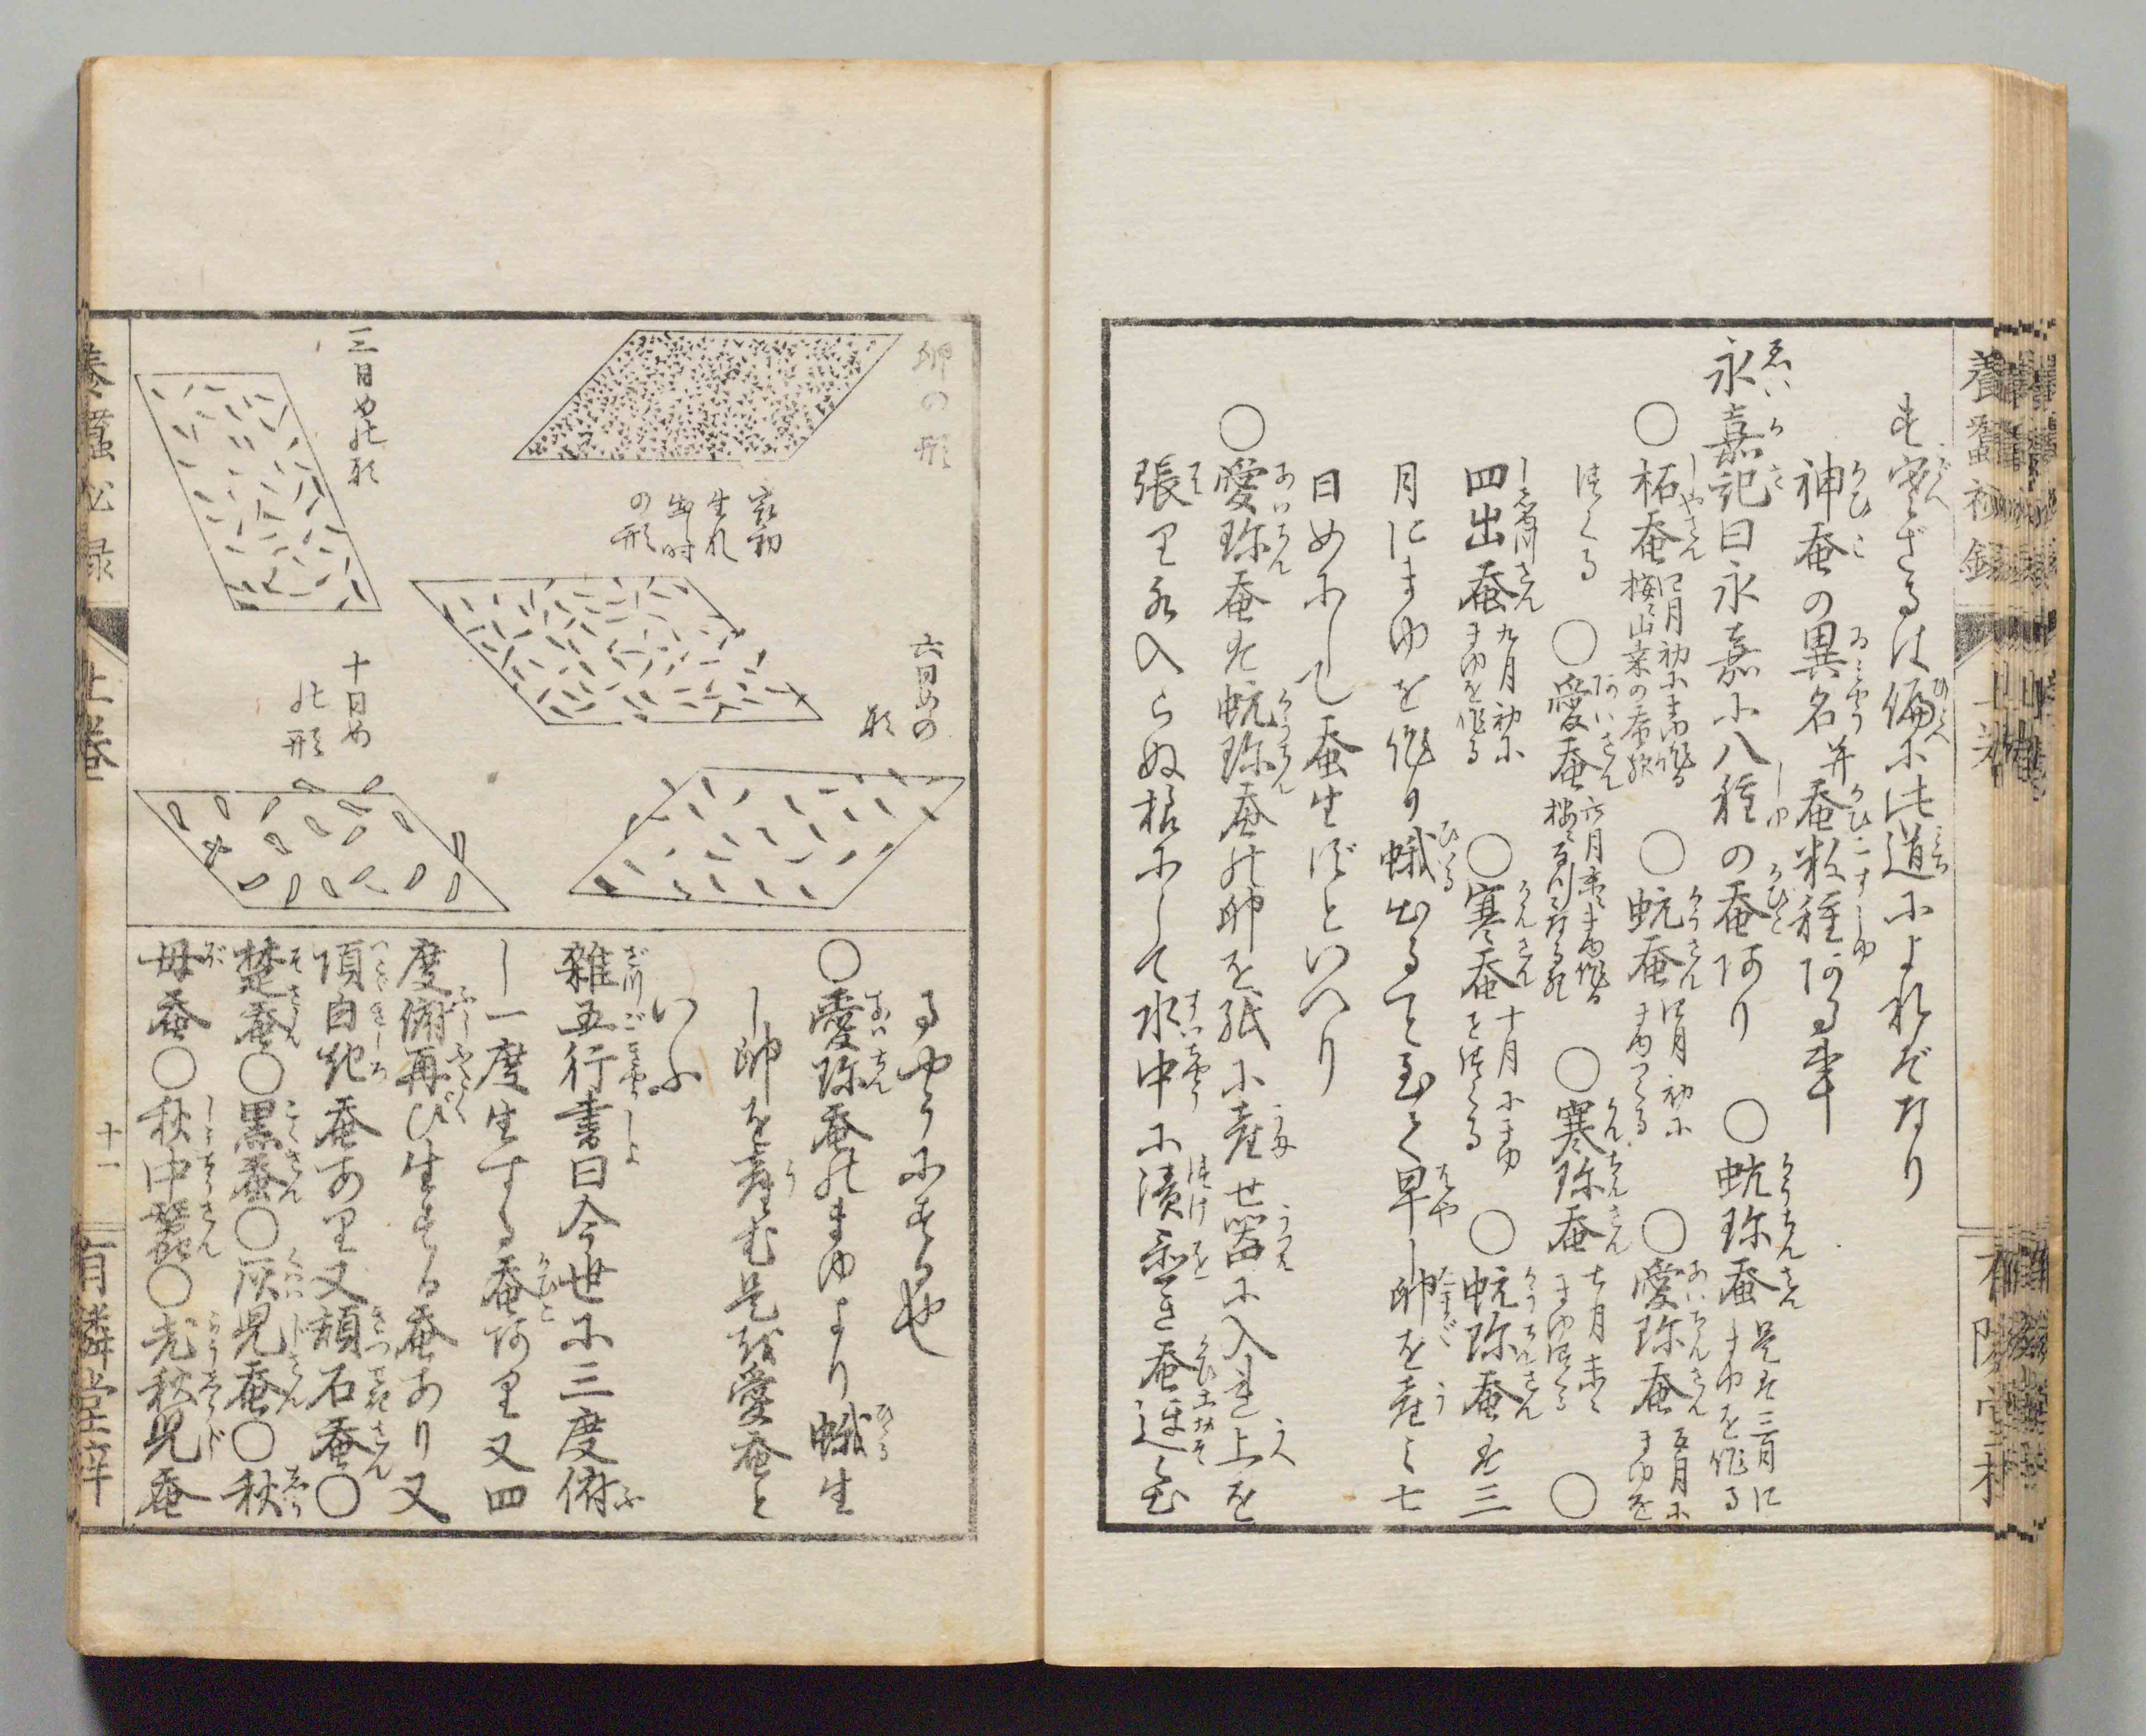 養蚕秘録
上巻
す寒ざるは偏に此道によればなり
神蚕の異名并蚕数種ある事
永嘉記曰永嘉に八種の蚕あり ○蚖珍蚕 是は三月にまゆを作る
○柘蚕 四月初にまゆ作る ○蚖蚕 四月初にまゆつくる ○愛珍蚕 五月にまゆを
つくる ○愛蚕 六月末まゆ作る ○寒珍蚕 七月末にまゆつくる ○
四出蚕 九月初にまゆを作る ○寒蚕 十月にまゆをつくる ○蚖珍蚕は三
月にまゆを作り蛾出ること至て早し卵を産こと七
日めにして蚕生ずといへり
○愛珍蚕は蚖珍蚕の卵を紙に産せ器に入れ上を
張り水入らぬ様にして水中に漬置き蚕遅く出
卵の形
最初生れ出し時の形
三日めの形
六日めの形
十日めの形
るやうにする也
○愛珍蚕のまゆより蛾生
し卵を産む是を愛蚕と
いふ
雑五行書曰今世に三度俯
し一度生する蚕あり又四
度俯再び生する蚕あり又
頂白蚕あり又頡石蚕○
楚蚕○黒蚕○灰児蚕○秋
母蚕○秋中蚕○老秋児蚕
養蚕秘録
上巻
十一
有隣堂梓